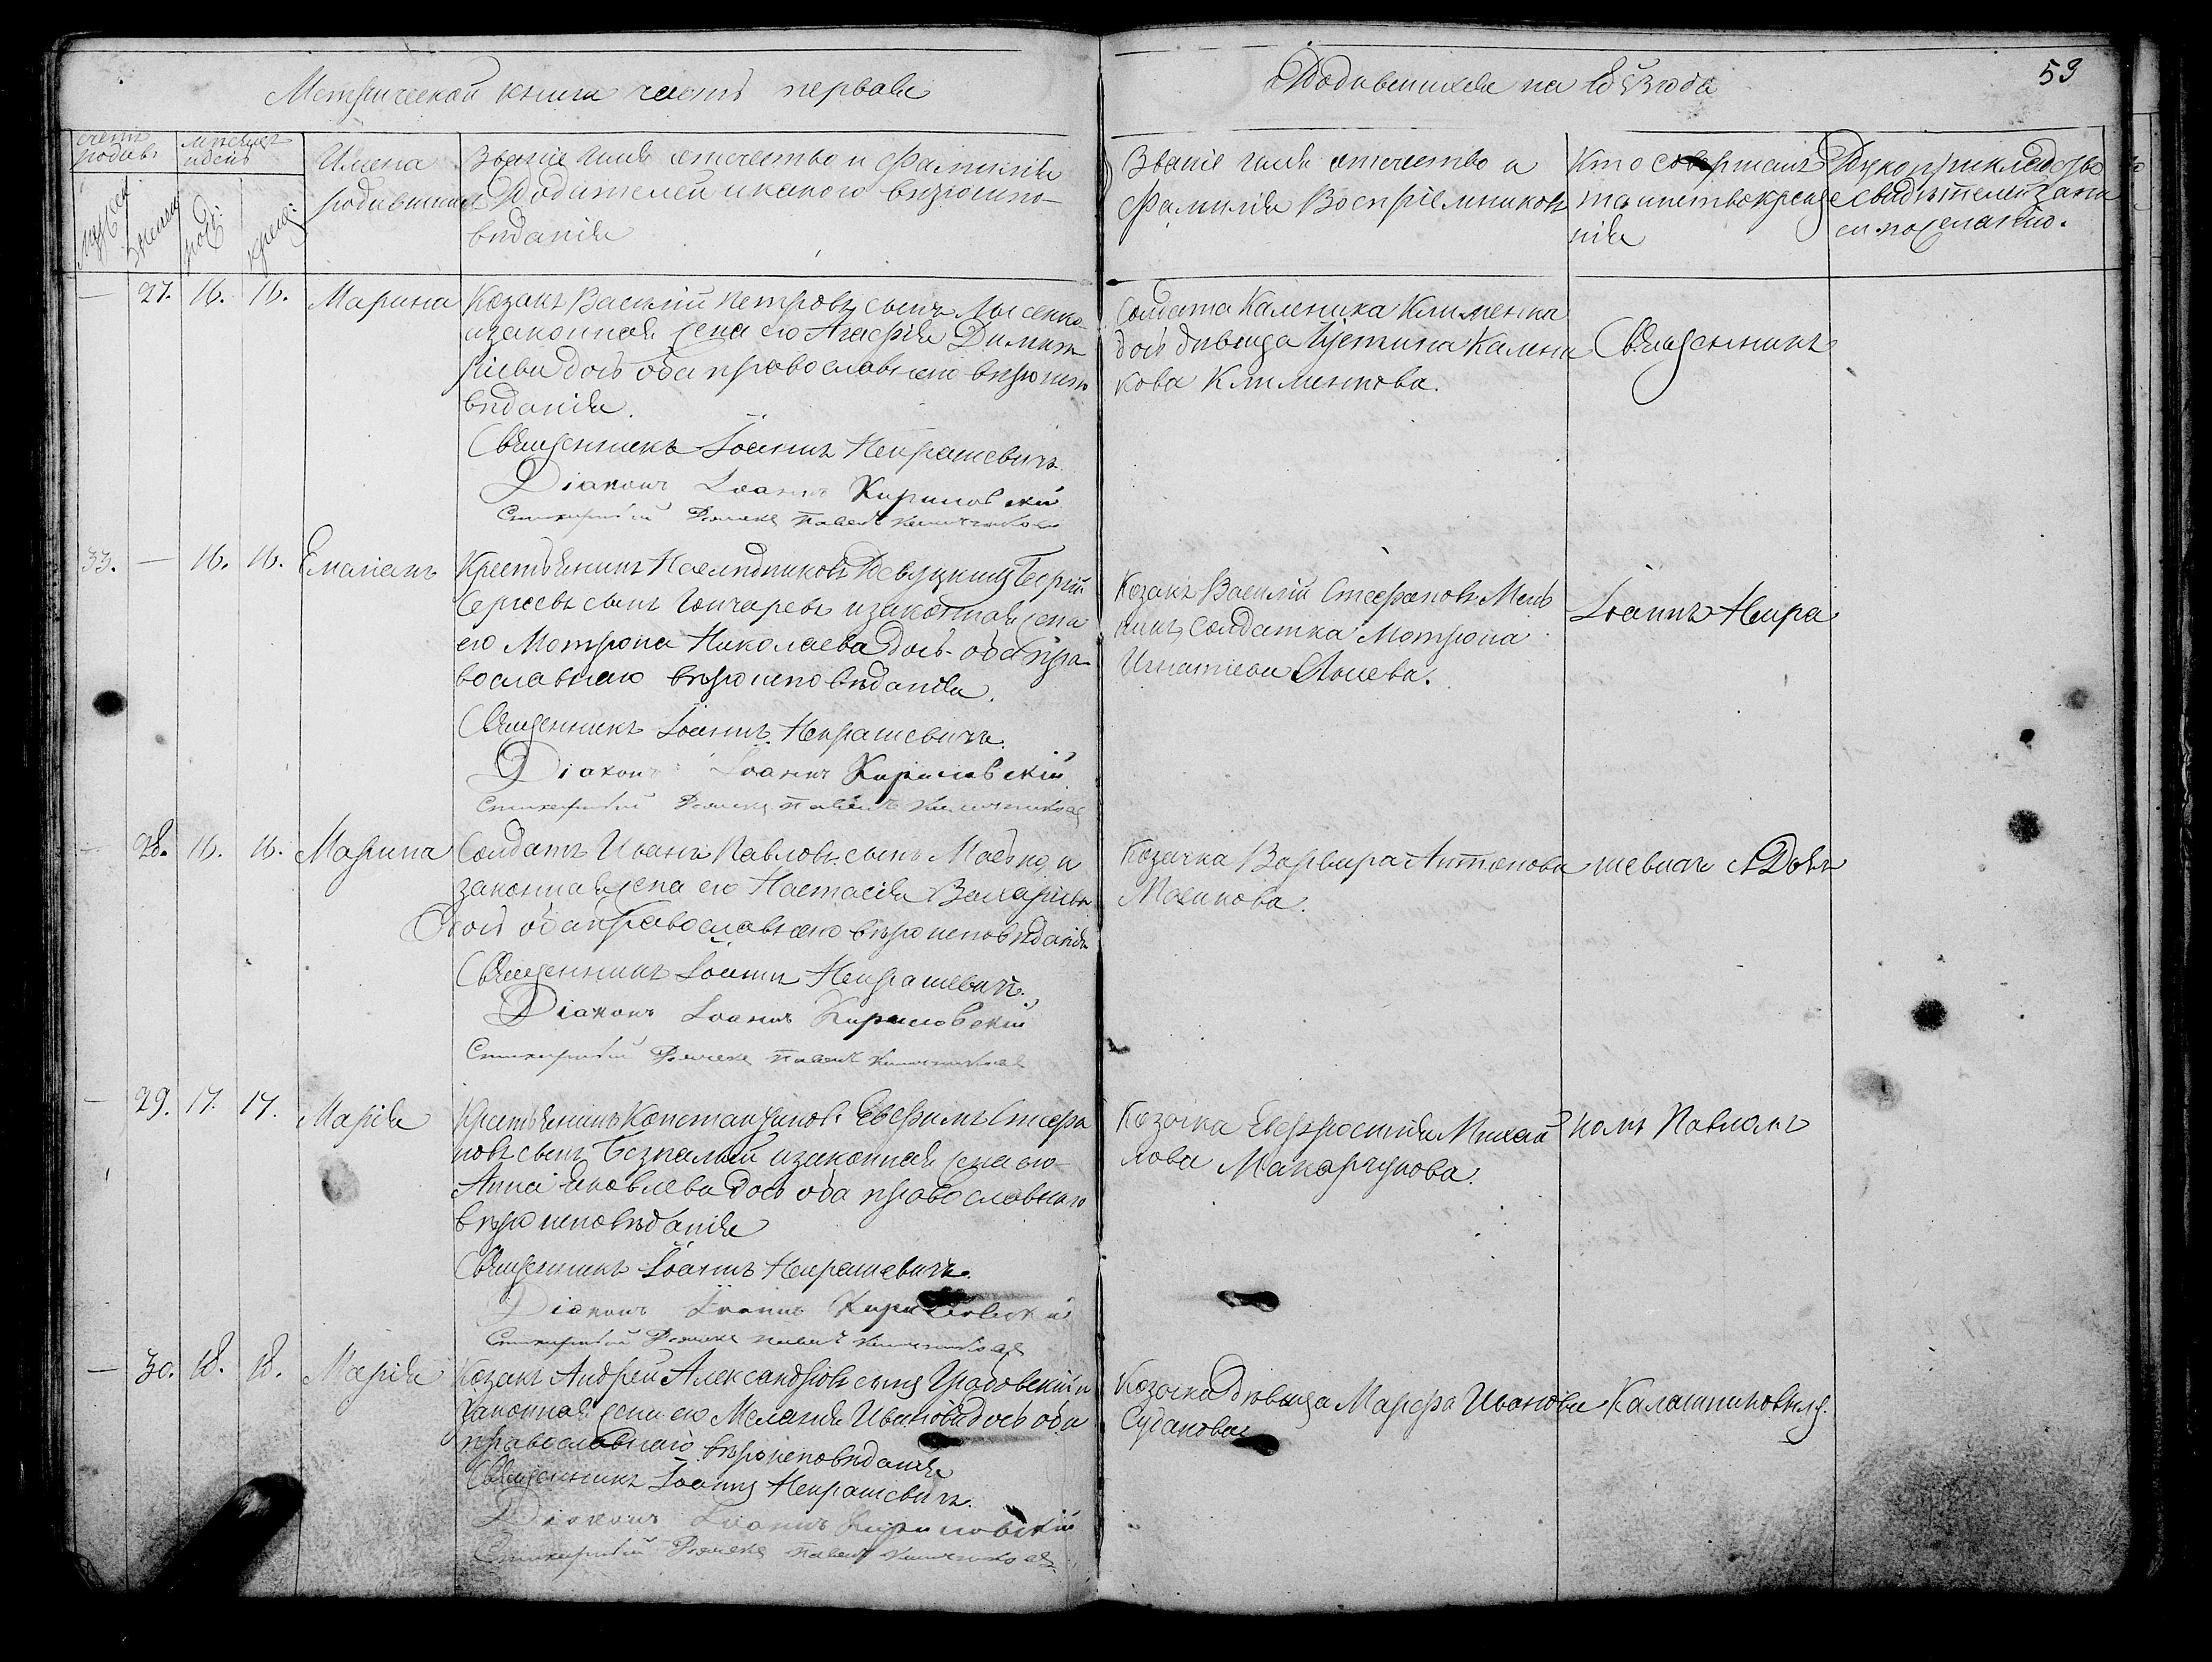 Метрической книги часть первая
о Родившихся на года
59
счетъ родив:
мѣсяцъ и день
Имена родившихся
Званіе имя отчество и фамилія
Родителей и какого вѣроиспо-
вѣданія
Званіе имя отчество и
фамилія Воспріемниковъ
Кто совершалъ
таинство креще
нія
Рукоприкладство
свидѣтелей запи
си по желанію.
мужск:
женска
рожд:
крещ:
— 27. 16. 16. Марина
Козакъ Василій Петровъ сынъ Лысенко
и законная жена его Агафія Димит
ріева дочь оба православнаго вѣроиспо
вѣданія.
Священникъ Іоаннъ Неурашевичъ
Діаконъ Іоаннъ Кириловскій
Стихарный Дьячекъ Павелъ Калашниковъ
Солдата Каленика Клименка
дочь дѣвица Устина Калени
кова Клименкова.
Священникъ
33. — 16. 16. Емаліанъ
Крестьянинъ Наслѣдниковъ Георгій
Сергѣевъ сынъ Гончаревъ и законная жена
его Мотрона Николаева дочь оба пра-
вославнаго вѣроисповѣданія.
Священникъ Іоаннъ Неурашевичъ.
Діаконъ Іоаннъ Кириловскій
Стихарный Дьячекъ Павелъ Калашниковъ
Козакъ Василій Стефановъ Мель
никъ, солдатка Мотрона
Игнатіева
Іоаннъ Неура
— 28. 16. 16. Марина
Солдатъ Иванъ Павловъ сынъ и
законная жена его Настасія Захаріева
дочь оба православнаго вѣроисповѣданія
Священникъ Іоаннъ Неурашевичъ.
Діаконъ Іоаннъ Кириловскій
Стихарный Дьячекъ Павелъ Калашниковъ
Козачка Варвара Антонова
Масикова.
шевичъ с Дья
— 29. 17. 17. Марія
Крестьянинъ Евфимъ Стефа
новъ сынъ Безпалый и законная жена его
Анна Яковлева дочь оба православнаго
вѣроисповѣданія
Священникъ Іоаннъ Неурашевичъ.
Діаконъ Іоаннъ Кириловскій
Стихарный Дьячекъ Павелъ Калашниковъ
Козачка Евфросинія Михай
лова Макарчукова.
комъ Павломъ
— 30. 18. 18. Марія
Козакъ Андрей Александровъ сынъ Градовскій и
законная жена его Меланія Иванова дочь оба
православнаго вѣроисповѣданія
Священникъ Іоаннъ Неурашевичъ.
Діаконъ Іоаннъ Кириловскій
Стихарный Дьячекъ Павелъ Калашниковъ
Козачка дѣвица Марфа Иванова
Судакова
Калашниковымъ.